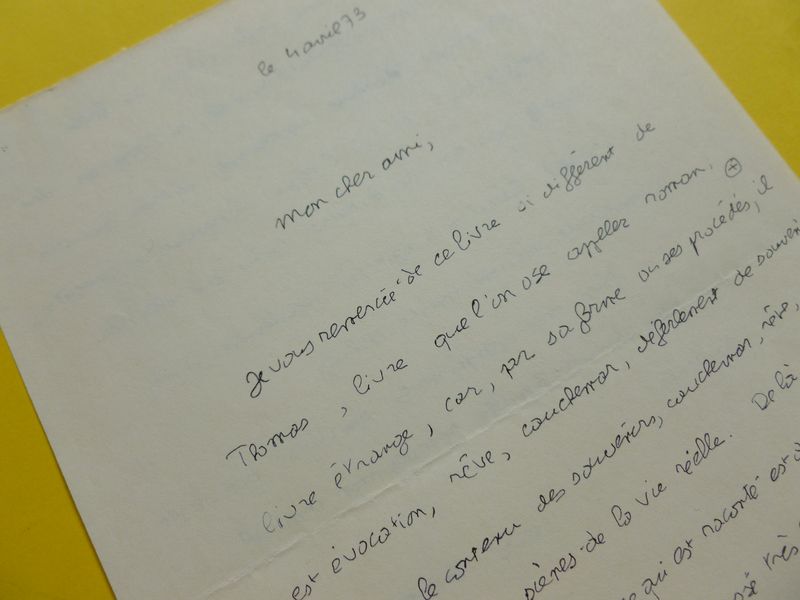 le 4 avril 73
mon cher ami,
Je vous remercie de ce livre si différent de
Thomas, livre que l'on ose appeler roman. +
livre étrange, car, par sa forme ou ses procédés, il
est évocation, rêve, cauchemar, différent de souveni
le contenu des souvenirs, cauchemar, rêve,
de la vie réelle. De là
ce qui est raconté est
très